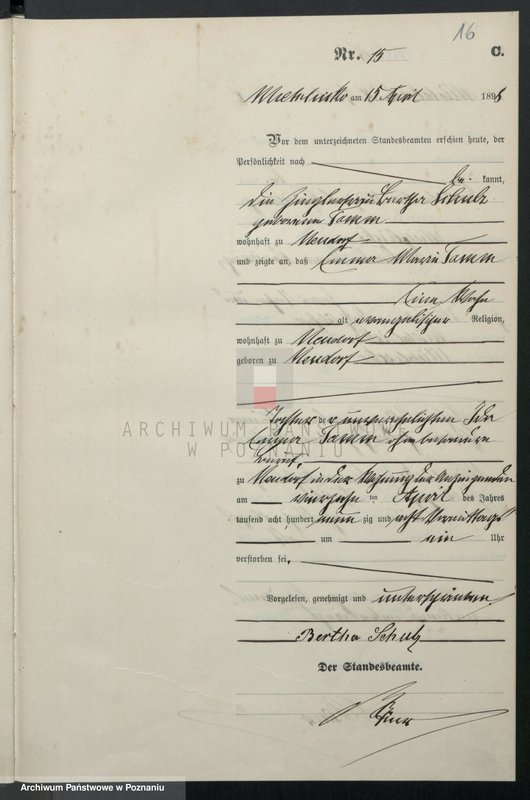 16
Nr. 15 C.
am 15 April 1898
Vor dem unterzeichneten Standesbeamten erschien heute, der
Persönlichkeit nach
be kannt,
die Bertha Schulz
geborene Tomm
wohnhaft zu Neudorf
und zeigte an, daß Emma Marie Tomm
Eine Woche
alt evangelischer Religion,
wohnhaft zu Neudorf
geboren zu Neudorf
Tochter der unverehelichten Ida
Emma Tomm ohne besonderen
Beruf
ARCHIWUM PAŃSTWOWE
W POZNANIU
zu Neudorf in der Wohnung der Anzeigenden
am vierzehn ten April des Jahres
tausend acht hundert neun zig und acht Vormittags
um ein Uhr
verstorben sei.
Vorgelesen, genehmigt und unterschrieben
Bertha Schulz
Der Standesbeamte.
Archiwum Państwowe w Poznaniu